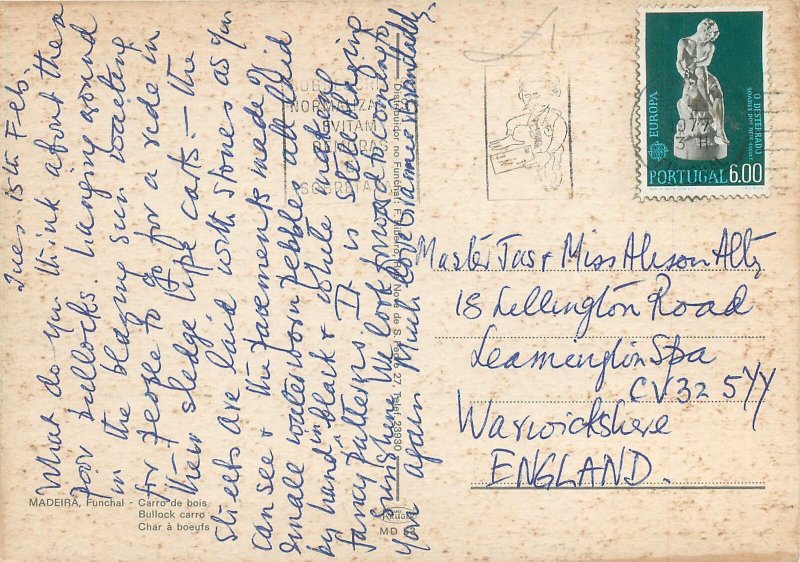 Tues. 15th Feb.
What do you think about these
poor bullocks. hanging around
in the blazing sun waiting
for people to go for a ride in
their sledge type cats — the
streets are laid with stones as you
can see & the pavements made of
small waterworn pebble all laid
by hand in black & white making
fancy patterns. It is still being
Sunshine. We look forward to coming to
you again Much love Grannie &
Master Jas & Miss Alison
18 Lillington Road
Leamington Spa
CV32 5YY
Warwickshire
ENGLAND.
EUROPA
O DESTERRADO
SOARES DOS REIS
PORTUGAL 6.00
MADEIRA, Funchal - Carro de bois
Bullock carro
Char à boeufs
Distribuido no Funchal: F. Ribeiro Nova de S. Pedro 27, Telef. 23930
NORMALIZA
EVITAM
MD